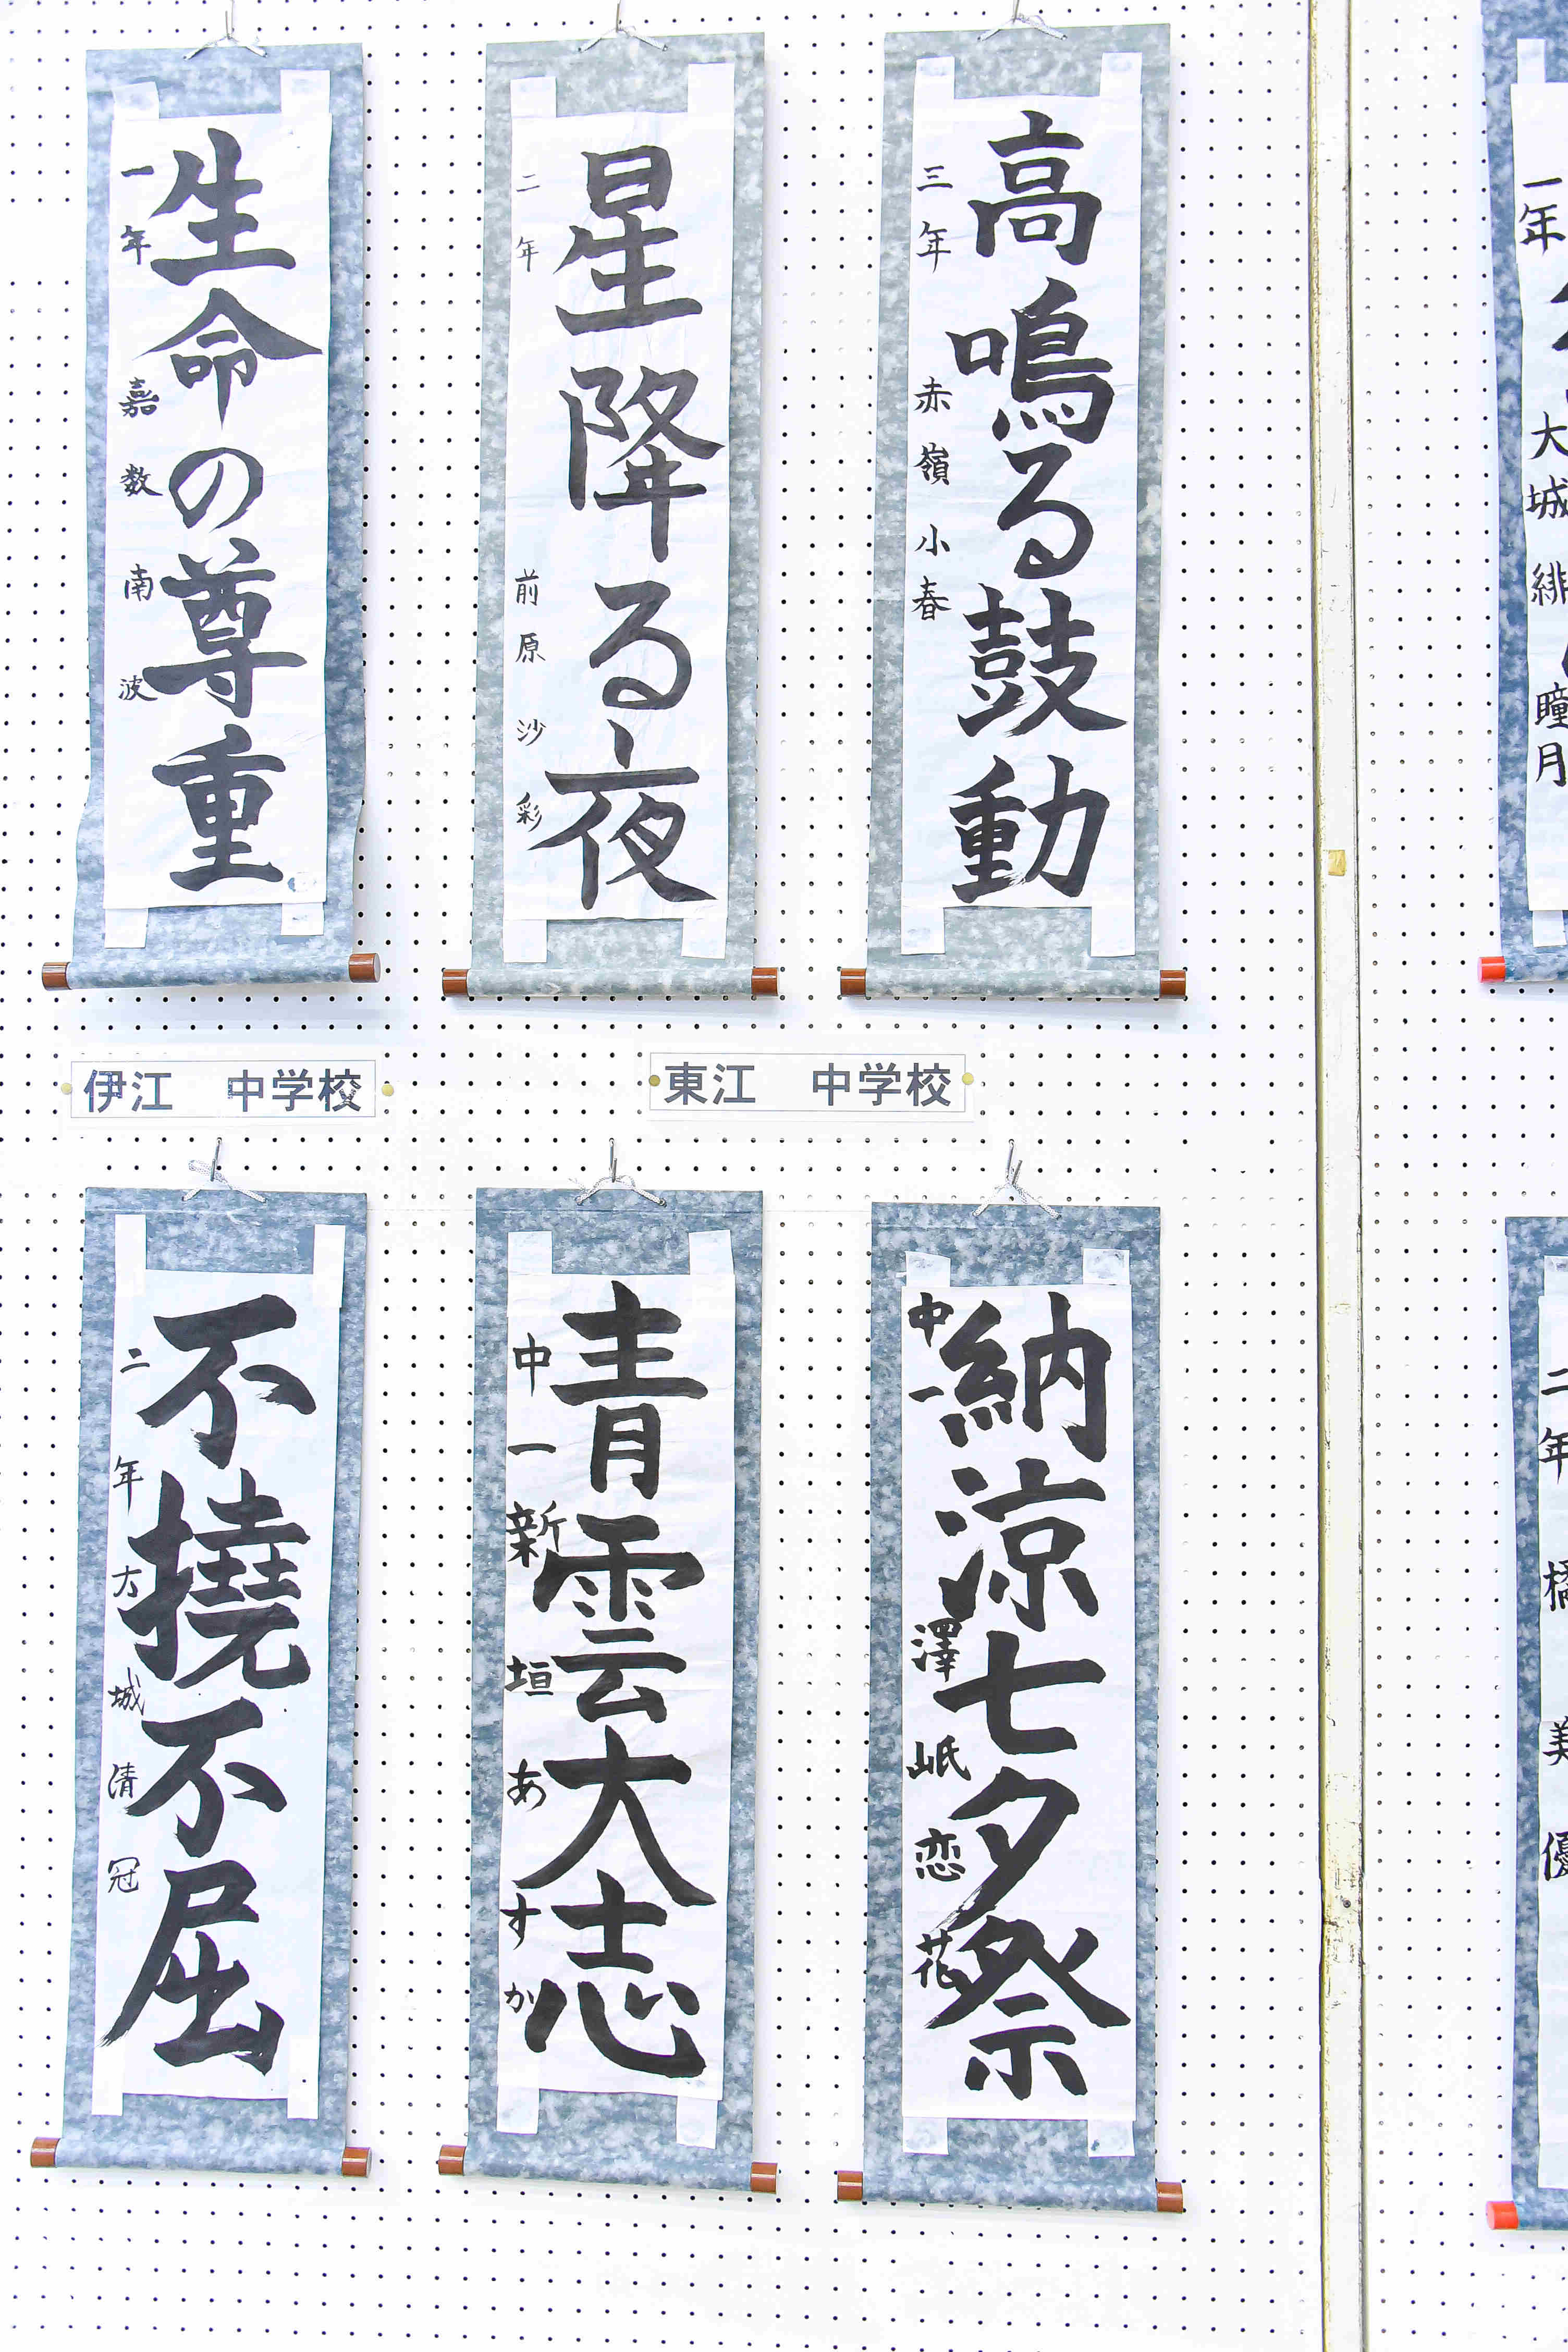 高鳴る鼓動
三年 赤嶺小春
星降る夜
二年 前原沙彩
生命の尊重
一年 嘉数南波
東江 中学校
伊江 中学校
納涼七夕祭
中一 澤岻恋花
青雲大志
中一 新垣あすか
不撓不屈
二年 大城清冠
一年 大城 緋 瞳月
二年 橘 美優